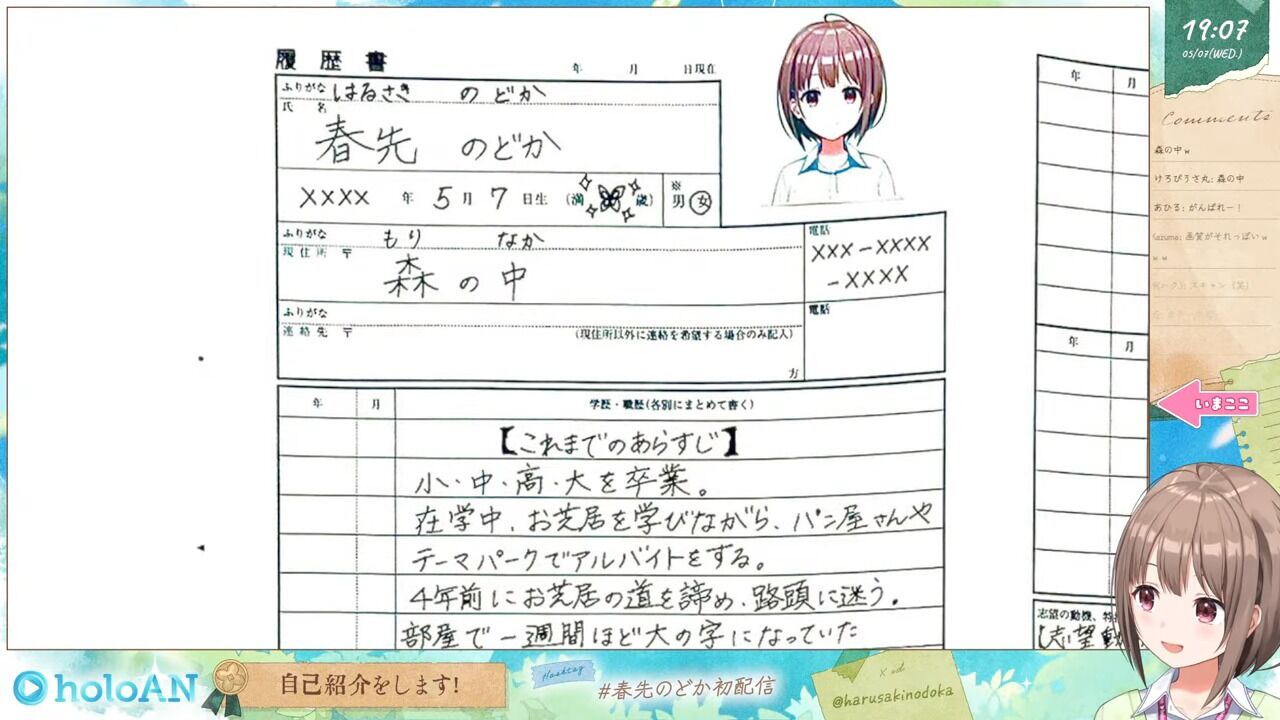 履歴書
年 月 日現在
ふりがな はるさき のどか
氏 名
春先 のどか
XXXX 年 5 月 7 日生 (満 歳)
※
男・女
ふりがな もり なか
現住所 〒
森の中
電話
XXX-XXXX
-XXXX
ふりがな
連絡先 〒
(現住所以外に連絡を希望する場合のみ記入)
方
電話
年 月 学歴・職歴(各別にまとめて書く)
【これまでのあらすじ】
小・中・高・大を卒業。
在学中、お芝居を学びながら、パン屋さんや
テーマパークでアルバイトをする。
4年前にお芝居の道を諦め、路頭に迷う。
部屋で一週間ほど大の字になっていた
年 月
年 月
志望の動機、特
志望動
19:07
05/07(WED.)
Comments
森の中w
けろぴうさ丸: 森の中
あひる: がんばれー!
Kazuma: 画質がそれっぽいw
w w
スキャン (笑)
いまここ
holoAN
自己紹介をします!
Hashtag
#春先のどか初配信
X id
@harusakinodoka